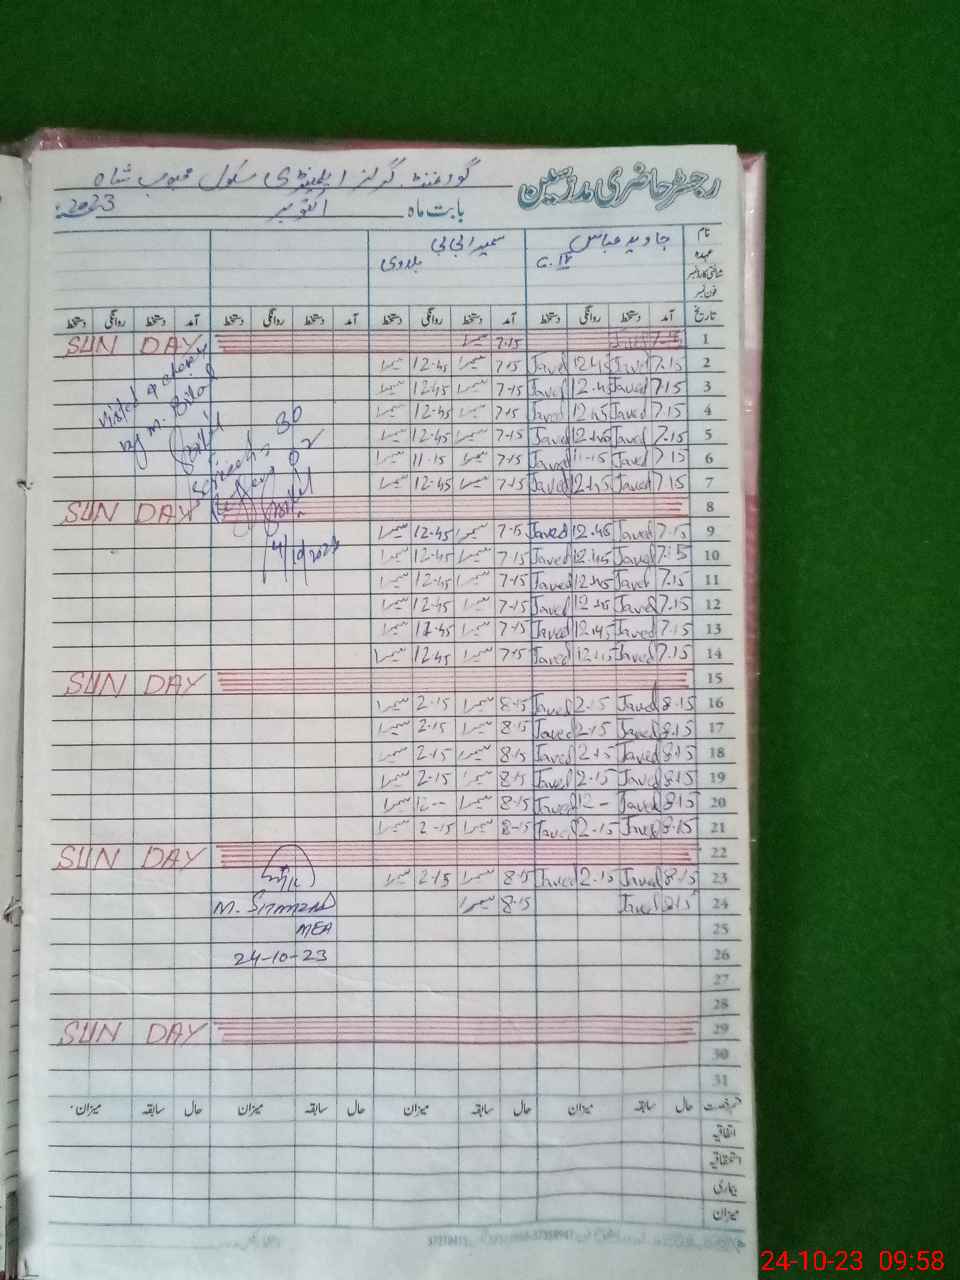 رجسٹر حاضری مدرسین گورنمنٹ گرلز ایلیمنٹری سکول محبوب شاہ
بابت ماہ اکتوبر 2023
نام جاوید عباس
عہدہ C.IV
فون نمبر
تاریخ آمد دستخط روانگی دستخط آمد دستخط روانگی دستخط آمد دستخط روانگی دستخط آمد دستخط روانگی دستخط
1 7.15 Javed 7.15 سمیرا SUN DAY
2 7.15 Javed 12.45 Javed 7.15 سمیرا 12.45 سمیرا
3 7.15 Javed 12.45 Javed 7.15 سمیرا 12.45 سمیرا
4 7.15 Javed 12.45 Javed 7.15 سمیرا 12.45 سمیرا
5 7.15 Javed 12.45 Javed 7.15 سمیرا 12.45 سمیرا
6 7.15 Javed 11.15 Javed 7.15 سمیرا 11.15 سمیرا
7 7.15 Javed 12.45 Javed 7.15 سمیرا 12.45 سمیرا
8 SUN DAY
9 7.15 Javed 12.45 Javed 7.15 سمیرا 12.45 سمیرا
10 7.15 Javed 12.45 Javed 7.15 سمیرا 12.45 سمیرا
11 7.15 Javed 12.45 Javed 7.15 سمیرا 12.45 سمیرا
12 7.15 Javed 12.45 Javed 7.15 سمیرا 12.45 سمیرا
13 7.15 Javed 12.45 Javed 7.15 سمیرا 12.45 سمیرا
14 7.15 Javed 12.15 Javed 7.15 سمیرا 12.45 سمیرا
15 SUN DAY
16 8.15 Javed 2.15 Javed 8.15 سمیرا 2.15 سمیرا
17 8.15 Javed 2.15 Javed 8.15 سمیرا 2.15 سمیرا
18 8.15 Javed 2.15 Javed 8.15 سمیرا 2.15 سمیرا
19 8.15 Javed 2.15 Javed 8.15 سمیرا 2.15 سمیرا
20 8.15 Javed 12 - Javed 8.15 سمیرا 12 -- سمیرا
21 8.15 Javed 2.15 Javed 8.15 سمیرا 2.15 سمیرا
22 SUN DAY
23 8.15 Javed 2.15 Javed 8.15 سمیرا 2.15 سمیرا
24 8.15 Javed 8.15 سمیرا
25 MEA
26 24-10-23
27
28
29 SUN DAY
30
31
by M. Bilal
30
02
حال سابقہ میزان حال سابقہ میزان حال سابقہ میزان حال سابقہ میزان
اتفاقیہ
استحقاقیہ
بیماری
میزان
24-10-23 09:58